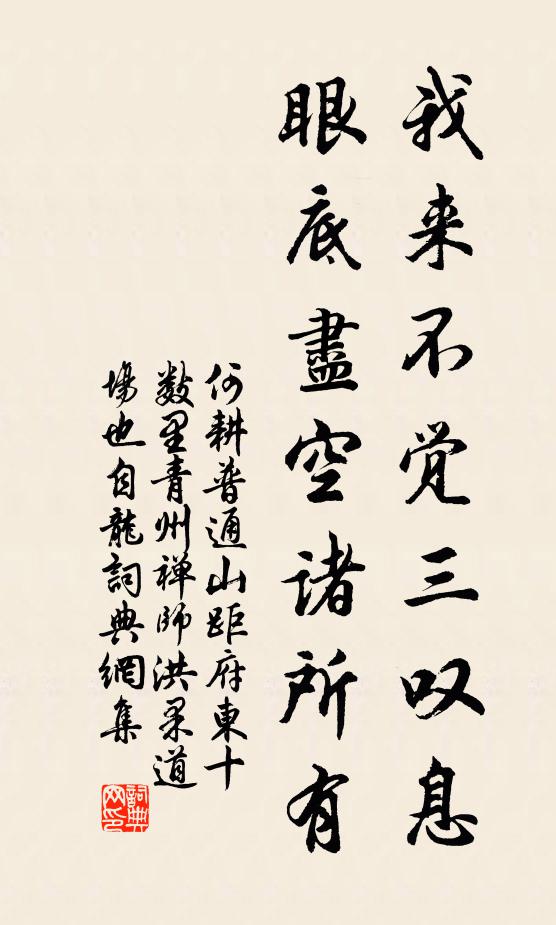 我来不觉三叹息
眼底盡空诸所有
何耕普通山距府東十
数里青州禅师洪柔道
場也自龍詞典網集
詞典
网印